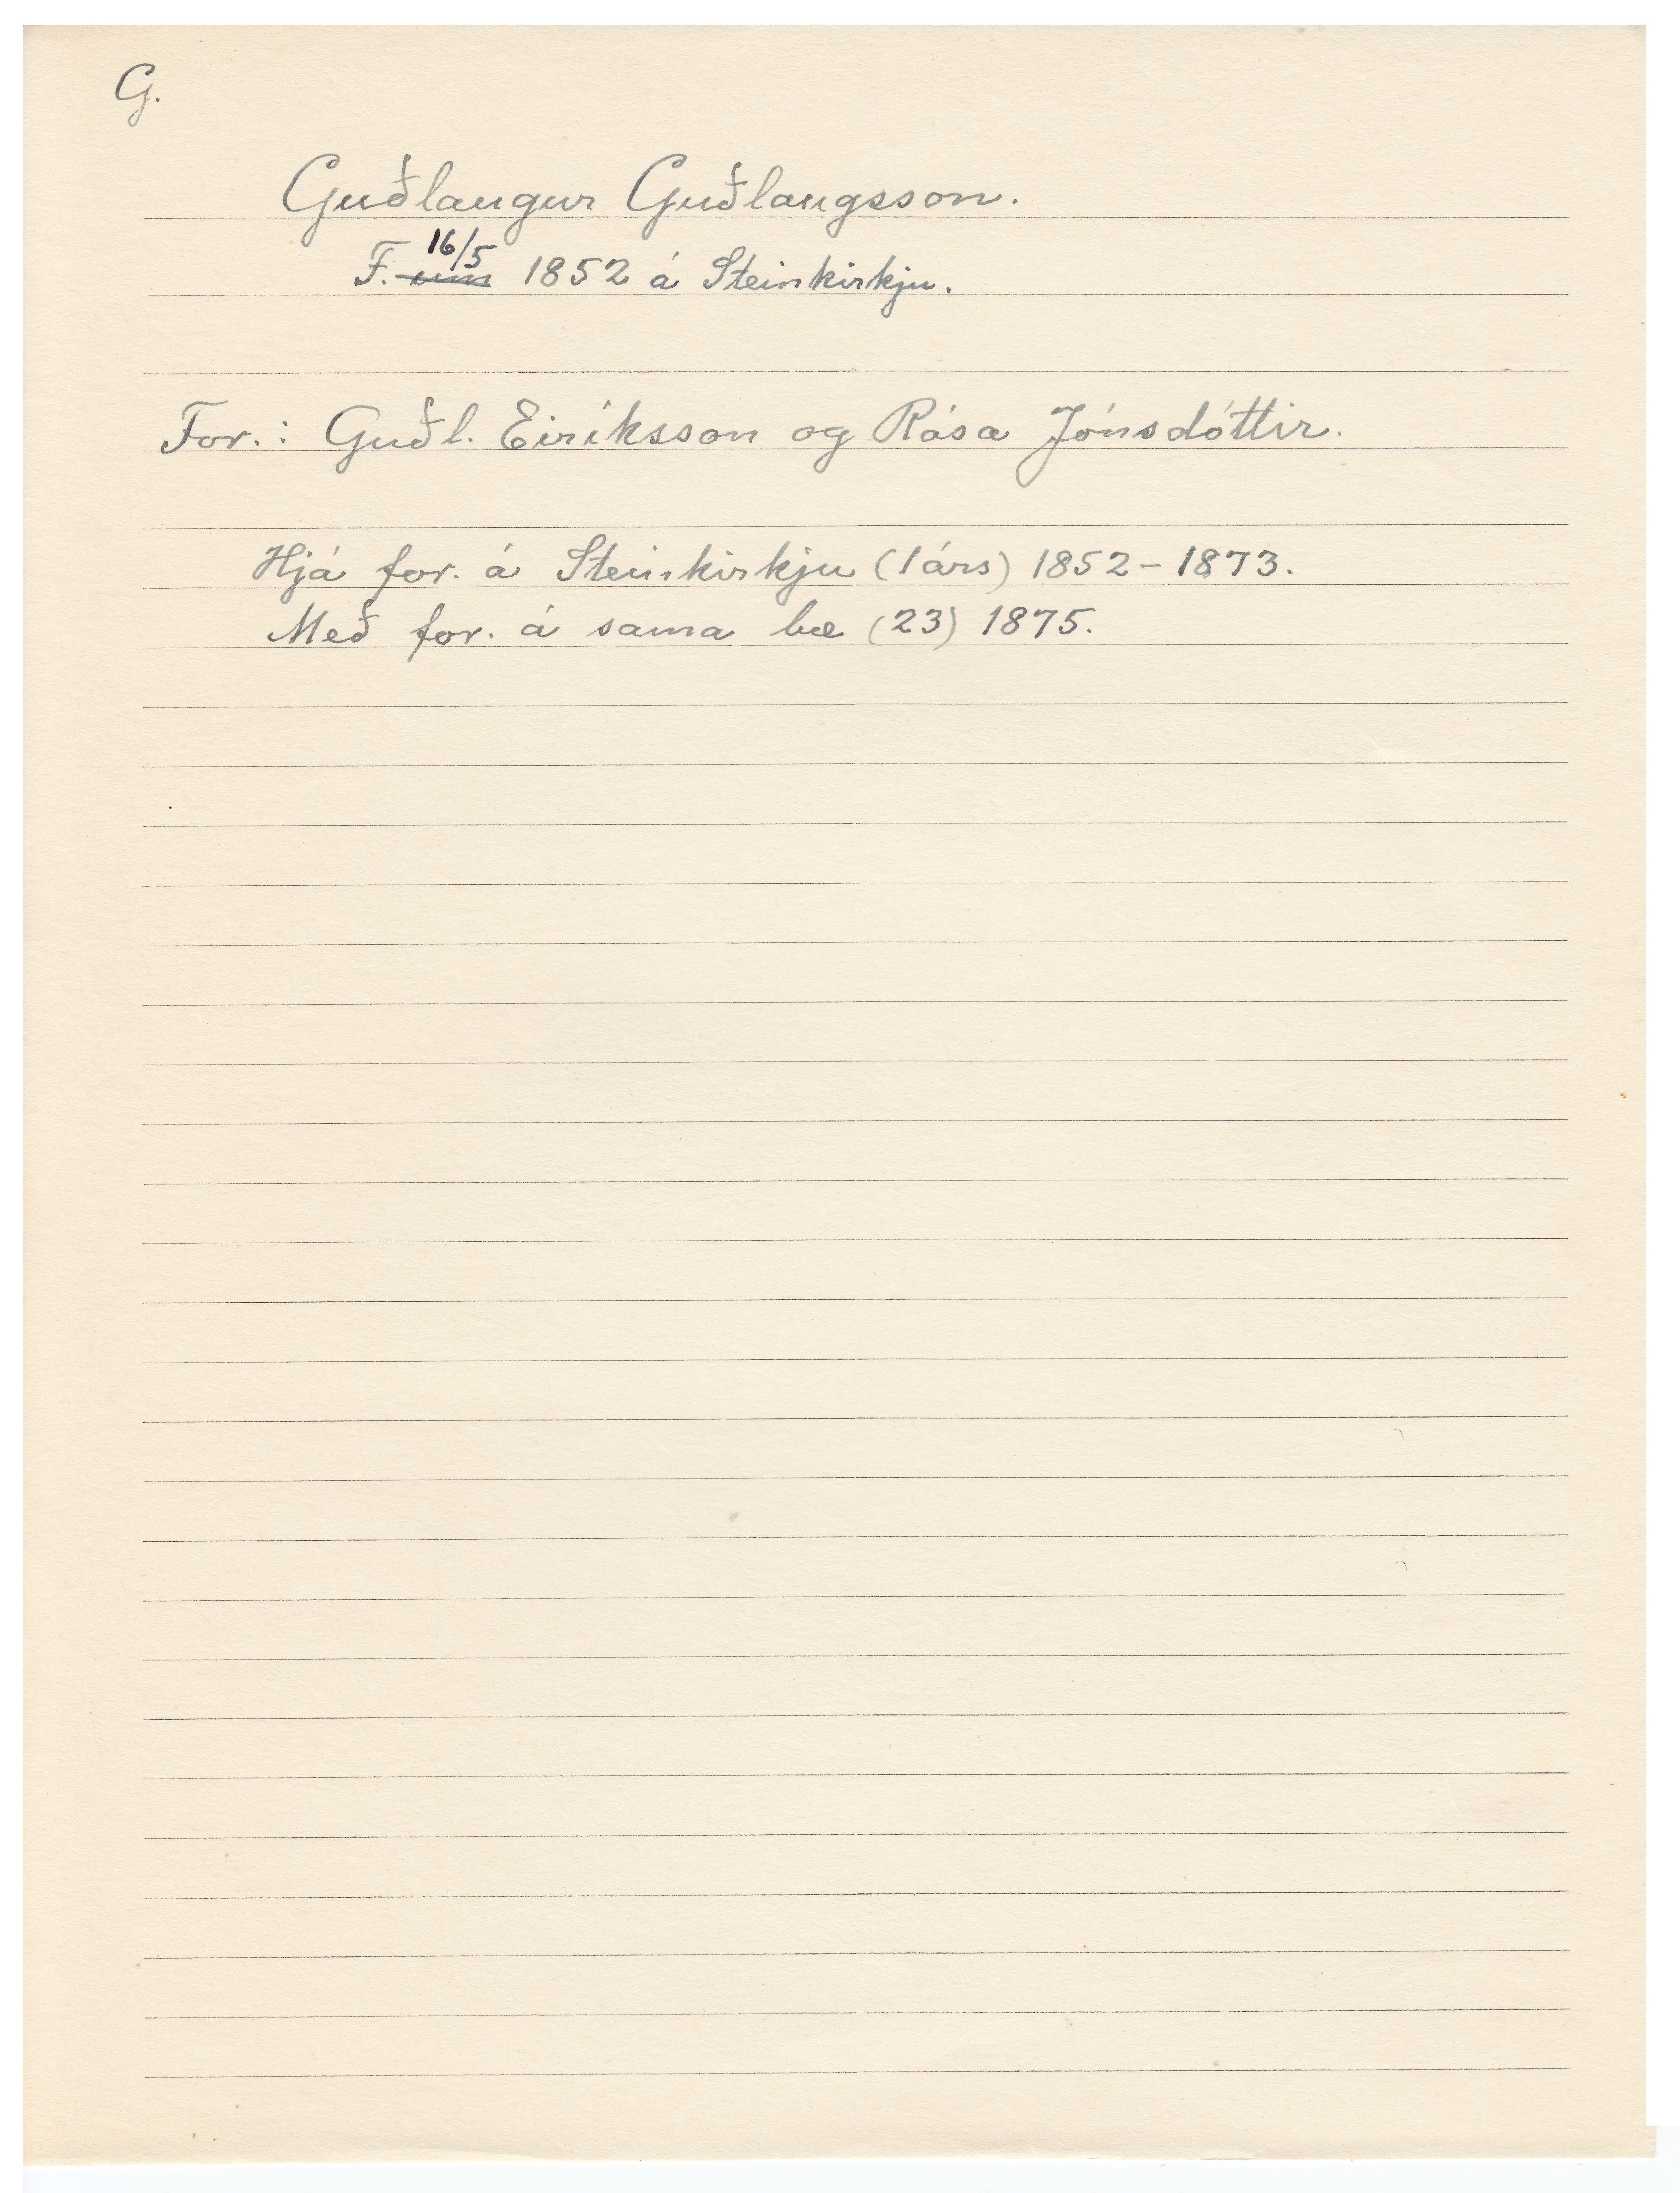 G.
Guðlaugur Guðlaugsson.
F. um 16/5 1852 á Steinkirkju.
For.: Guðl. Eiríksson og Rósa Jónsdóttir.
Hjá for. á Steinkirkju (1 árs) 1852-1873.
Með for. á sama bæ (23) 1875.